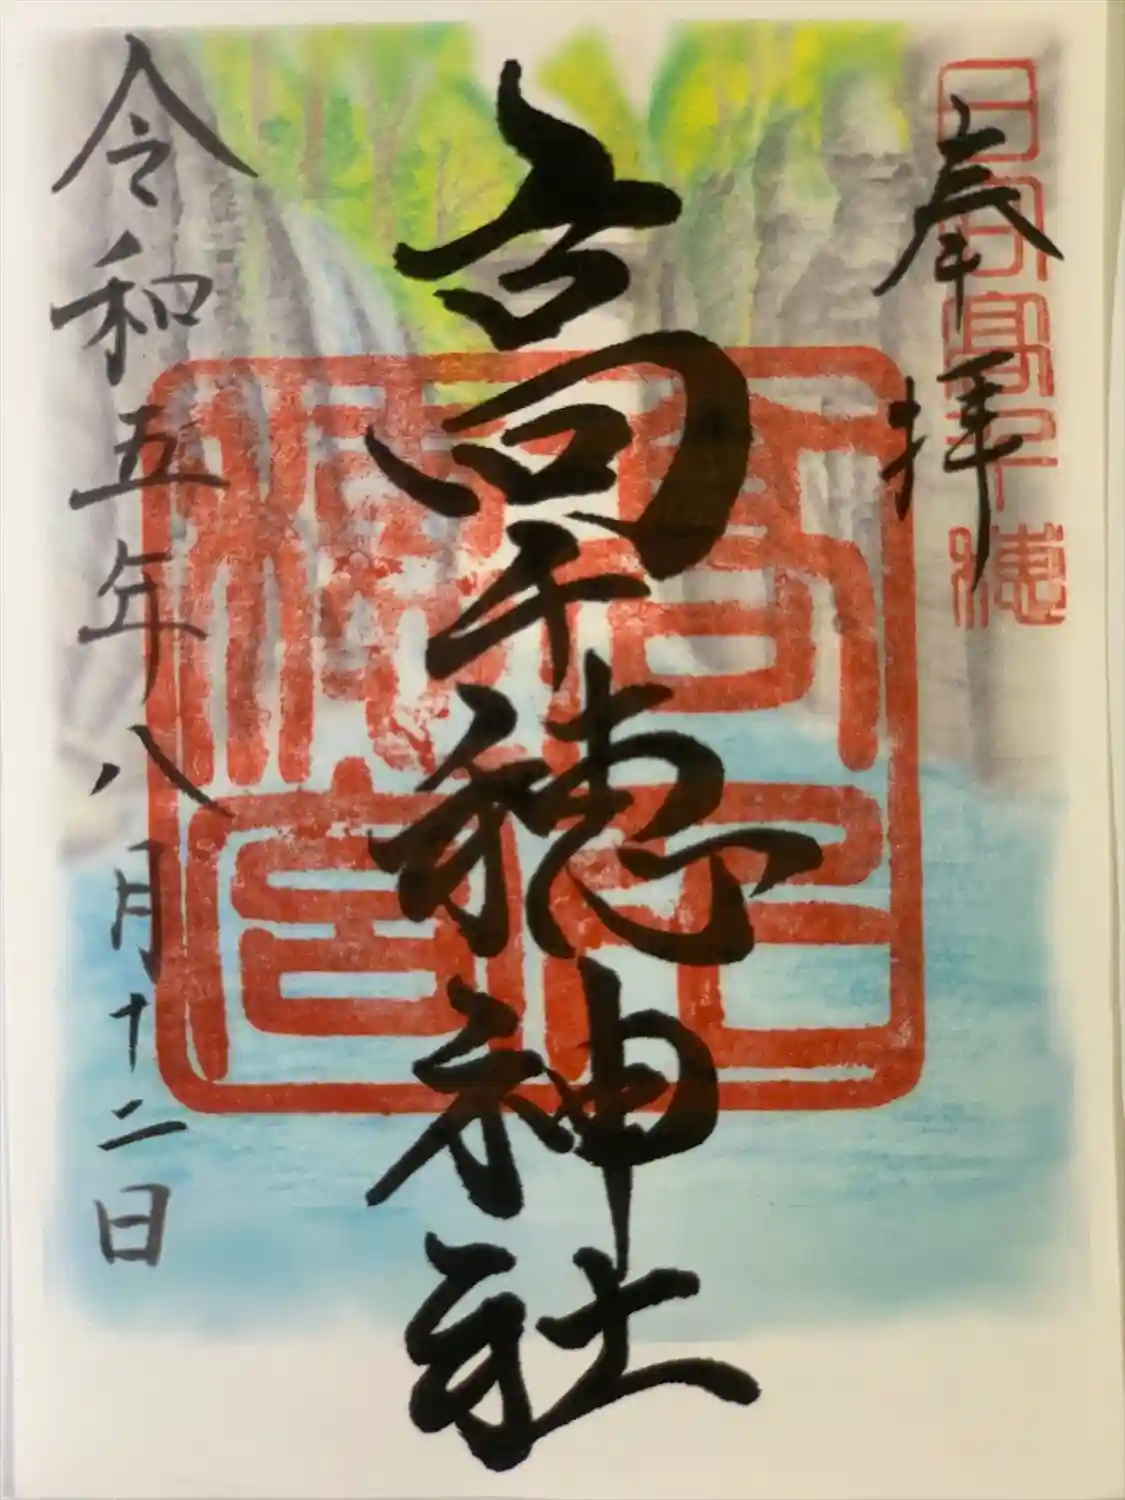 奉拝
日向高千穂
高千穂神社
令和五年八月十二日